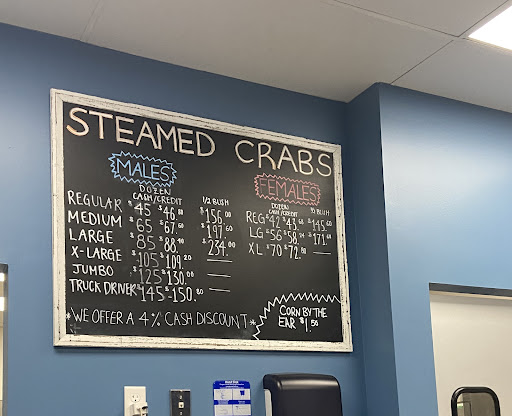 STEAMED CRABS
MALES
DOZEN
CASH/CREDIT 1/2 BUSH
REGULAR $45 $46.80 $156.00
MEDIUM $65 $67.60 $197.60
LARGE $85 $88.40 $234.00
X-LARGE $105 $109.20 —
JUMBO $125 $130.00 —
TRUCK DRIVER $145 $150.80 —
FEMALES
DOZEN
CASH/CREDIT ½ BUSH
REG $42 $43.68 $145.60
LG $56 $58.24 $171.60
XL $70 $72.80 —
*WE OFFER A 4% CASH DISCOUNT*
CORN BY THE
EAR $1.50